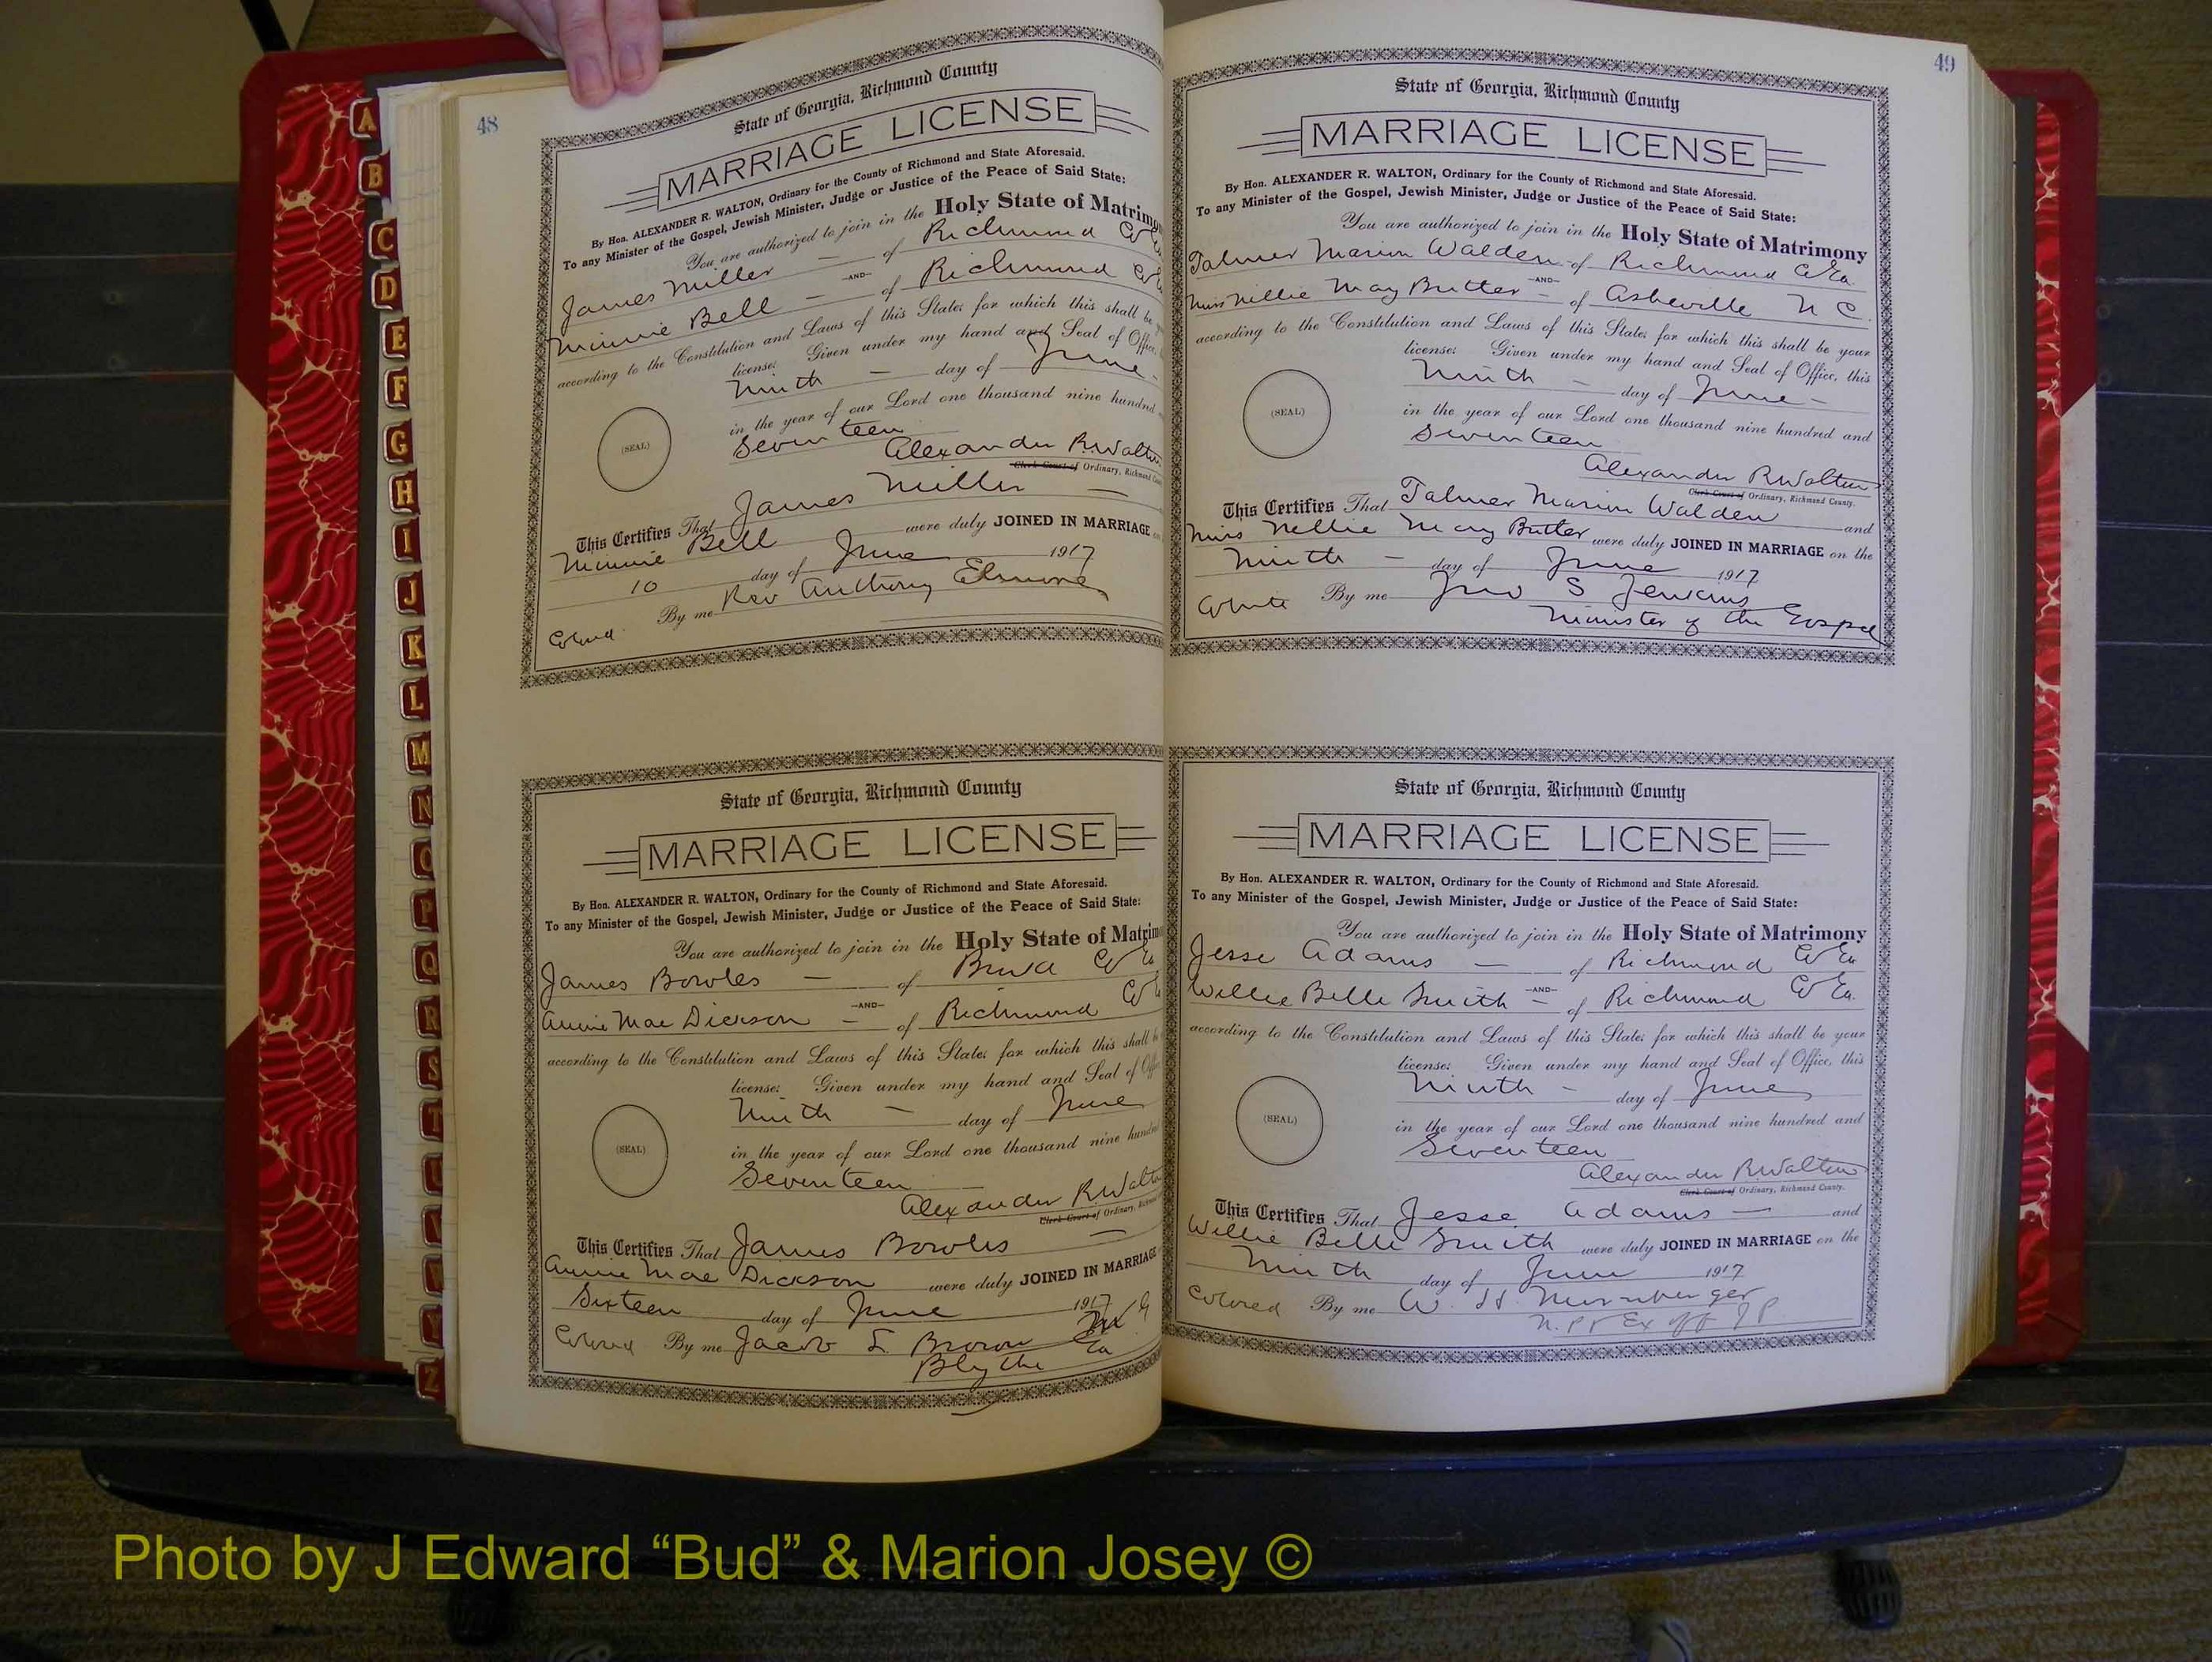 48
State of Georgia, Richmond County
MARRIAGE LICENSE
By Hon. ALEXANDER R. WALTON, Ordinary for the County of Richmond and State Aforesaid.
To any Minister of the Gospel, Jewish Minister, Judge or Justice of the Peace of Said State:
You are authorized to join in the Holy State of Matrimo
James Miller — of Richmond Co
—AND—
Minnie Bell — of Richmond Co
according to the Constitution and Laws of this State; for which this shall be
license: Given under my hand and Seal of Office,
Ninth — day of June
(SEAL)
in the year of our Lord one thousand nine hundred
Seventeen
Alexander R Walton
Clerk Court of Ordinary, Richmond
This Certifies That James Miller —
Minnie Bell were duly JOINED IN MARRIAGE
10 day of June 1917
By me Rev Anthony
Colored
State of Georgia, Richmond County
MARRIAGE LICENSE
By Hon. ALEXANDER R. WALTON, Ordinary for the County of Richmond and State Aforesaid.
To any Minister of the Gospel, Jewish Minister, Judge or Justice of the Peace of Said State:
You are authorized to join in the Holy State of Matrim
James Bowles — of Co
—AND—
Annie Mae Dickson — of Richmond Co
according to the Constitution and Laws of this State; for which this shall
license: Given under my hand and Seal of
Ninth — day of June
(SEAL)
in the year of our Lord one thousand nine hund
Seventeen
Alexander R Walto
Clerk Court of Ordinary,
This Certifies That James Bowles —
Annie Mae Dickson were duly JOINED IN MARRIAGE
Sixteen day of June 1917
Colored By me Jacob S. Brown
Blythe Ga
49
State of Georgia, Richmond County
MARRIAGE LICENSE
By Hon. ALEXANDER R. WALTON, Ordinary for the County of Richmond and State Aforesaid.
To any Minister of the Gospel, Jewish Minister, Judge or Justice of the Peace of Said State:
You are authorized to join in the Holy State of Matrimony
Talmer Marion Walden of Richmond Co Ga.
—AND—
Miss Nellie May Butter — of Asheville N C.
according to the Constitution and Laws of this State; for which this shall be your
license: Given under my hand and Seal of Office, this
Ninth — day of June —
(SEAL)
in the year of our Lord one thousand nine hundred and
Seventeen
Alexander R Walton
Clerk Court of Ordinary, Richmond County.
This Certifies That Talmer Marion Walden and
Miss Nellie May Butter were duly JOINED IN MARRIAGE on the
Ninth — day of June 1917
White By me Jno S Jenkins
Minister of the Gospel
State of Georgia, Richmond County
MARRIAGE LICENSE
By Hon. ALEXANDER R. WALTON, Ordinary for the County of Richmond and State Aforesaid.
To any Minister of the Gospel, Jewish Minister, Judge or Justice of the Peace of Said State:
You are authorized to join in the Holy State of Matrimony
Jesse Adams — of Richmond Co Ga
—AND—
Willie Belle Smith — of Richmond Co Ga.
according to the Constitution and Laws of this State; for which this shall be your
license: Given under my hand and Seal of Office, this
Ninth — day of June
(SEAL)
in the year of our Lord one thousand nine hundred and
Seventeen
Alexander R Walton
Clerk Court of Ordinary, Richmond County.
This Certifies That Jesse Adams — and
Willie Belle Smith were duly JOINED IN MARRIAGE on the
Ninth day of June 1917
Colored By me W. H. Nurnberger
N. P. & Ex off J P
A
B
C
D
E
F
G
H
I
J
K
L
M
N
O
P
Q
R
S
T
U
V
W
Y
Z
Photo by J Edward “Bud” & Marion Josey ©